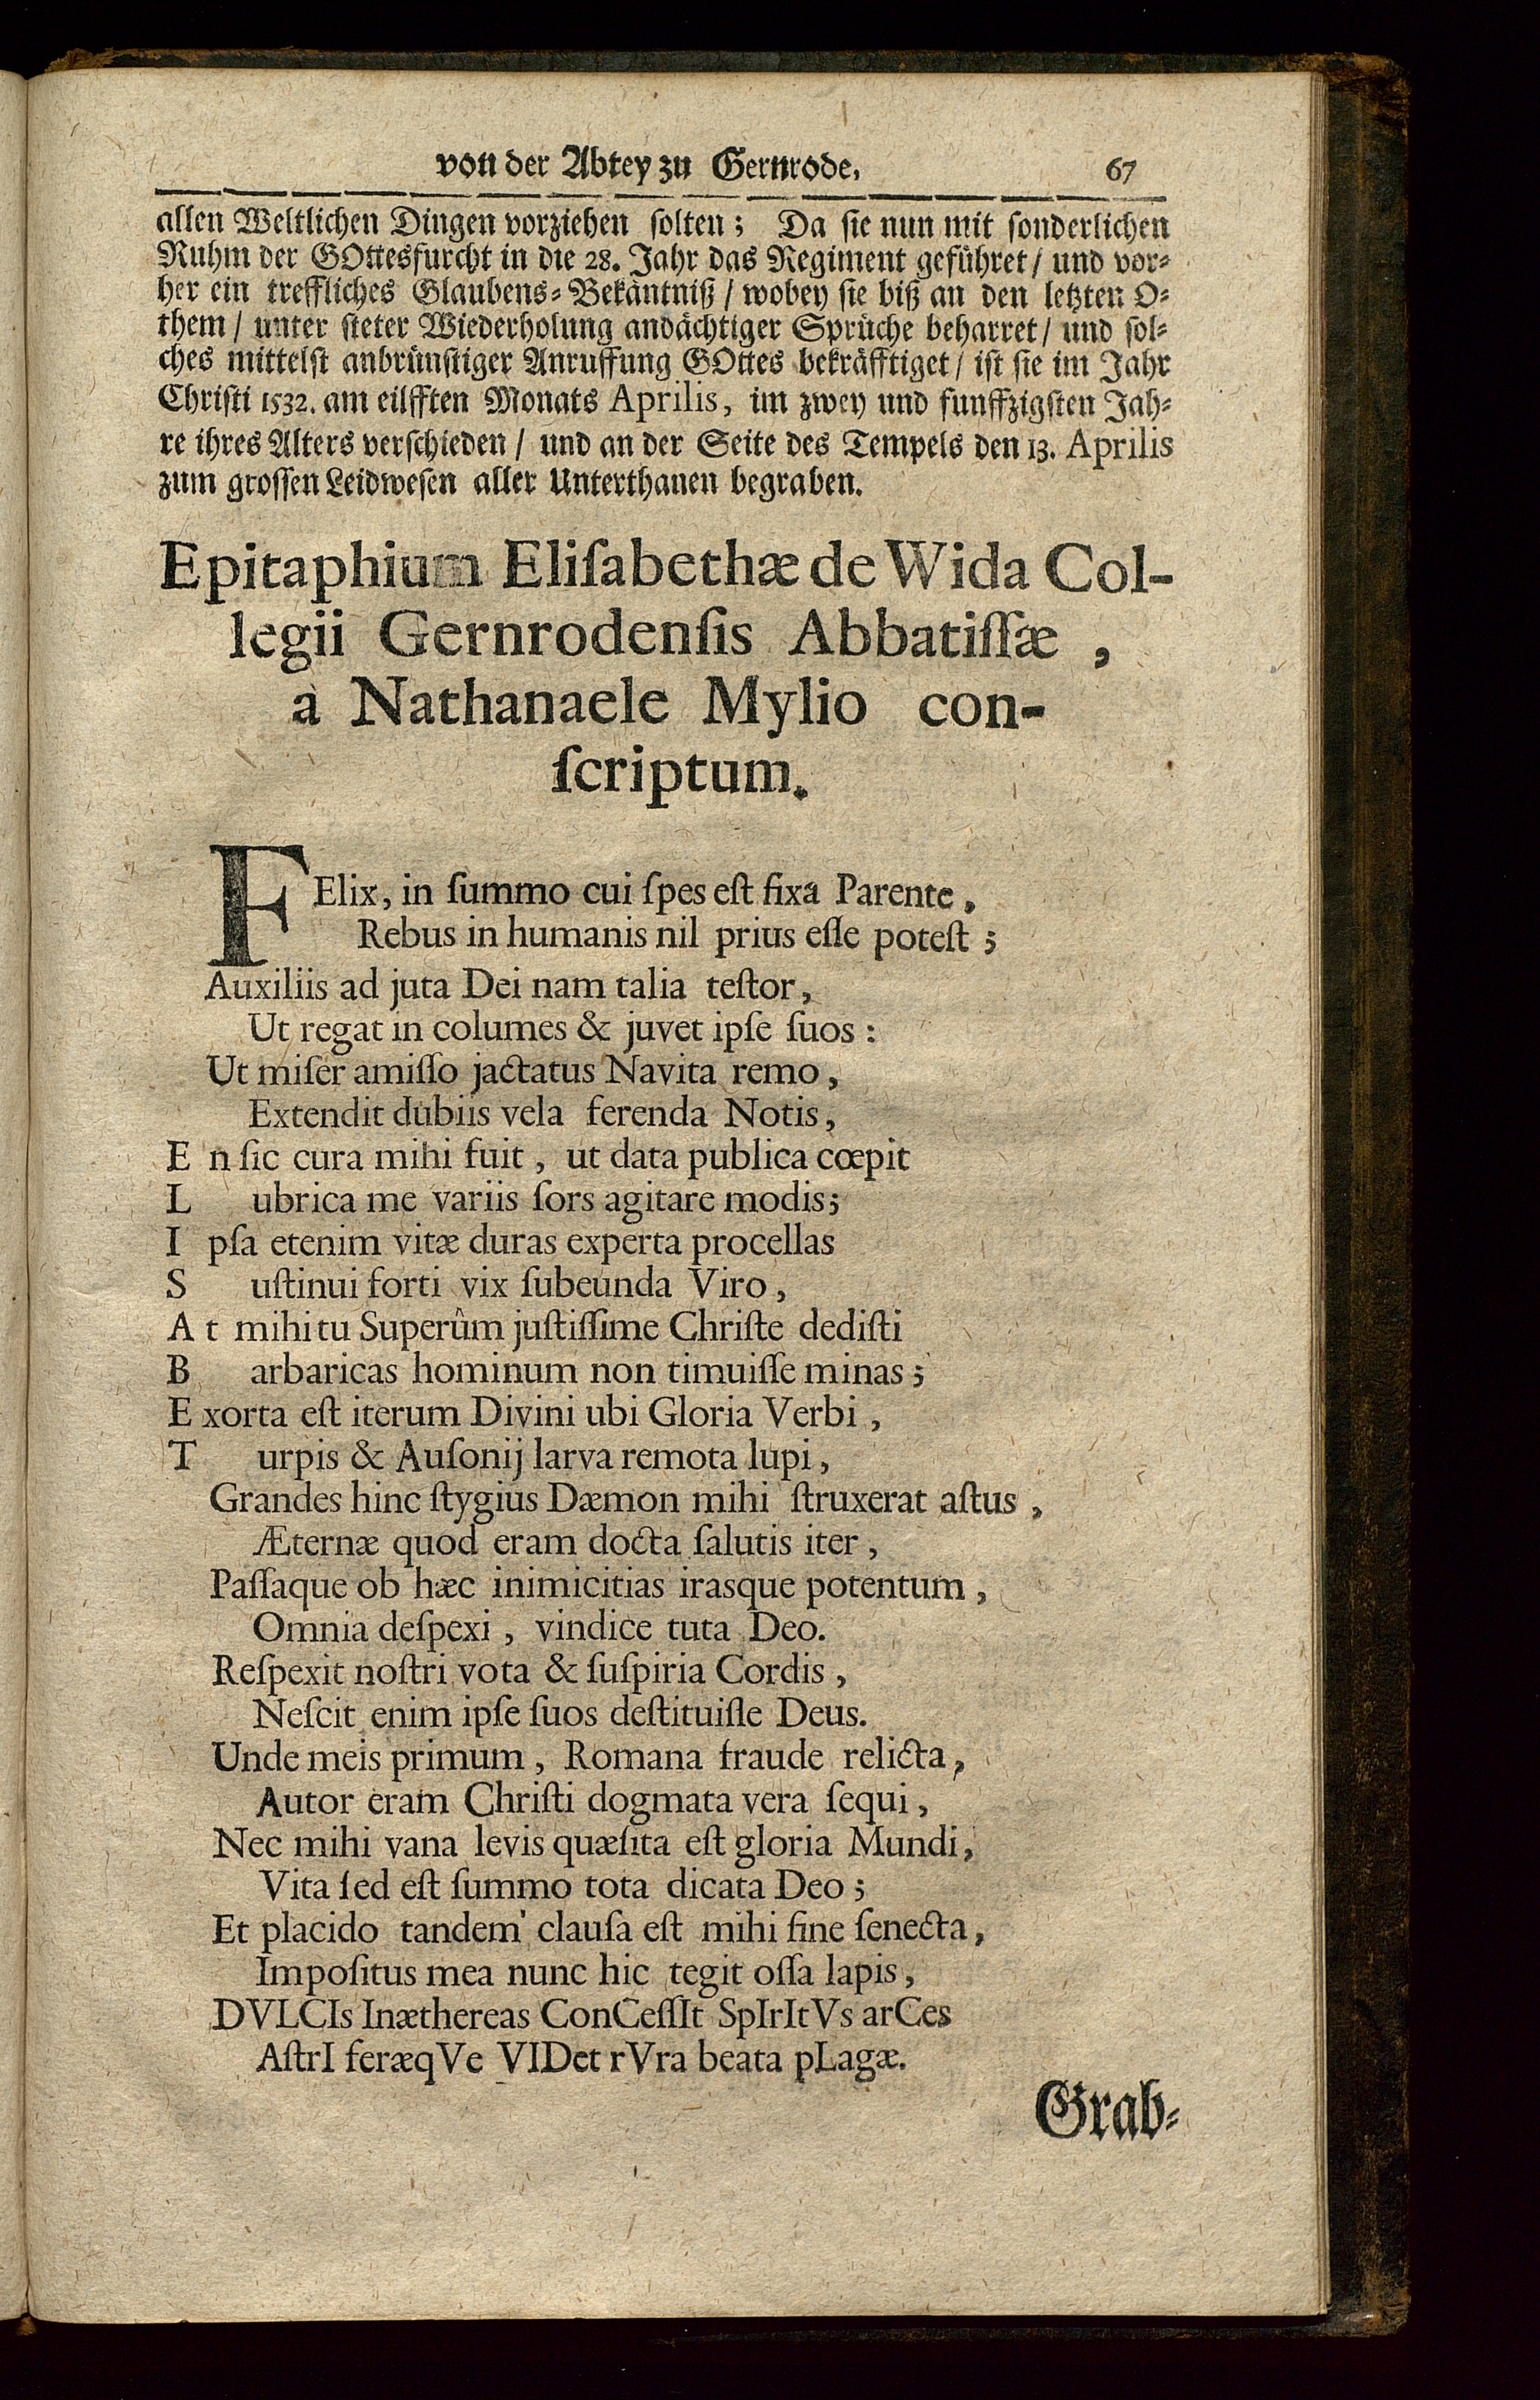 von der Abtey zu Gernrode. 67
allen Weltlichen Dingen vorziehen solten; Da sie nun mit sonderlichen
Ruhm der GOttesfurcht in die 28. Jahr das Regiment geführet / und vor-
her ein treffliches Glaubens-Bekäntniß / wobey sie biß an den letzten O-
them / unter steter Wiederholung andächtiger Sprüche beharret / und sol-
ches mittelst anbrünstiger Anruffung GOttes bekräfftiget / ist sie im Jahr
Christi 1532. am eilfften Monats Aprilis, im zwey und funffzigsten Jah-
re ihres Alters verschieden / und an der Seite des Tempels den 13. Aprilis
zum grossen Leidwesen aller Unterthanen begraben.
Epitaphium Eliſabethæ de Wida Col-
legii Gernrodenſis Abbatiſſæ,
a Nathanaele Mylio con-
ſcriptum.
FElix, in ſummo cui ſpes eſt fixa Parente,
Rebus in humanis nil prius eſſe poteſt;
Auxiliis ad juta Dei nam talia teſtor,
Ut regat in columes & juvet ipſe ſuos:
Ut miſer amiſſo jactatus Navita remo,
Extendit dubiis vela ferenda Notis,
E n ſic cura mihi fuit, ut data publica cœpit
L ubrica me variis ſors agitare modis;
I pſa etenim vitæ duras experta procellas
S uſtinui forti vix ſubeunda Viro,
A t mihi tu Superûm juſtiſſime Chriſte dediſti
B arbaricas hominum non timuiſſe minas;
E xorta eſt iterum Divini ubi Gloria Verbi,
T urpis & Auſonij larva remota lupi,
Grandes hinc ſtygius Dæmon mihi ſtruxerat aſtus,
Æternæ quod eram docta ſalutis iter,
Paſſaque ob hæc inimicitias irasque potentum,
Omnia deſpexi, vindice tuta Deo.
Reſpexit noſtri vota & ſuſpiria Cordis,
Neſcit enim ipſe ſuos deſtituiſſe Deus.
Unde meis primum, Romana fraude relicta,
Autor eram Chriſti dogmata vera ſequi,
Nec mihi vana levis quæſita eſt gloria Mundi,
Vita ſed eſt ſummo tota dicata Deo;
Et placido tandem clauſa eſt mihi fine ſenecta,
Impoſitus mea nunc hic tegit oſſa lapis,
DVLCIs Inæthereas ConCeſſIt SpIrItVs arCes
AſtrI feræqVe VIDet rVra beata pLagæ.
Grab-